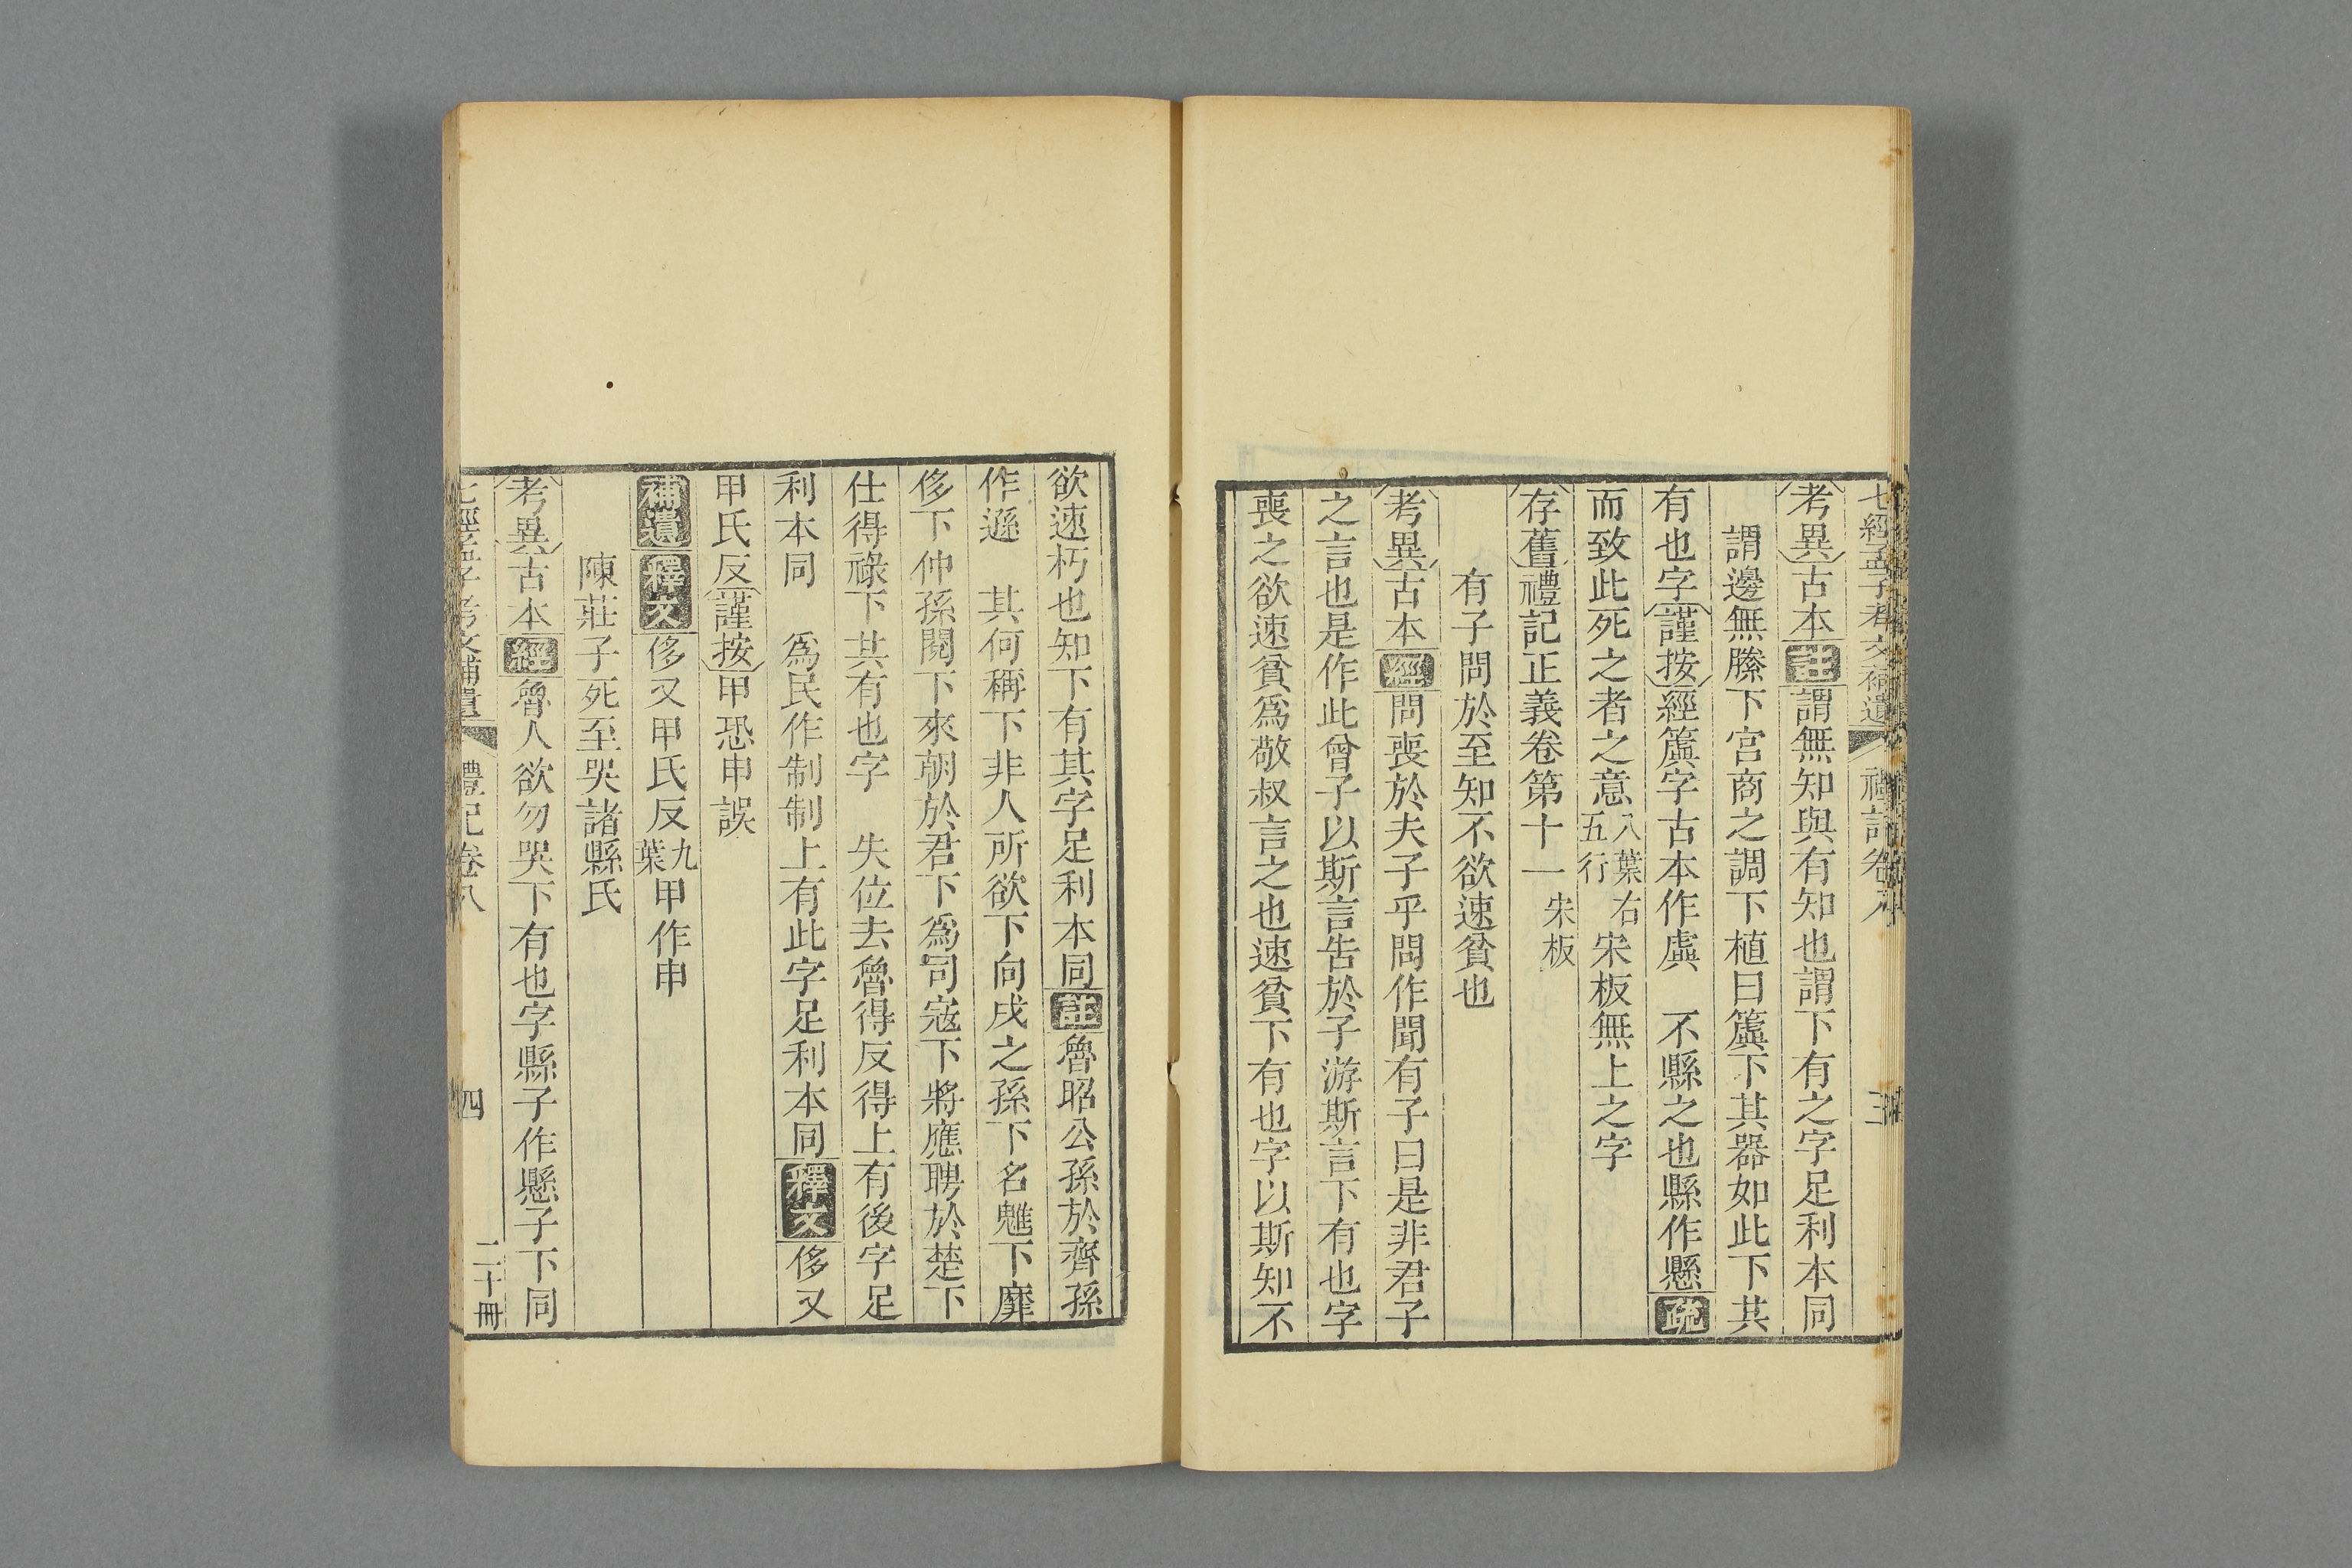 七經孟子考文補遺 禮記卷八 三
考異古本註謂無知與有知也謂下有之字足利本同
謂邊無縢下宮商之調下植曰簴下其器如此下共
有也字謹按經簴字古本作虡 不縣之也縣作懸疏
而致此死之者之意八葉右五行宋板無上之字
存舊禮記正義卷第十一宋板
有子問於至知不欲速貧也
考異古本經問喪於夫子乎問作聞有子曰是非君子
之言也是作此曾子以斯言告於子游斯言下有也字
喪之欲速貧爲敬叔言之也速貧下有也字以斯知不
欲速朽也知下有其字足利本同註魯昭公孫於齊孫
作遜 其何稱下非人所欲下向戌之孫下名魋下靡
侈下仲孫閱下來朝於君下爲司寇下將應聘於楚下
仕得祿下共有也字 失位去魯得反得上有後字足
利本同 爲民作制制上有此字足利本同釋文侈又
甲氏反謹按甲恐申誤
補遺釋文侈又甲氏反九葉甲作申
陳莊子死至哭諸縣氏
考異古本經魯人欲勿哭下有也字縣子作懸子下同
七經孟子考文補遺 禮記卷八 四 二十冊